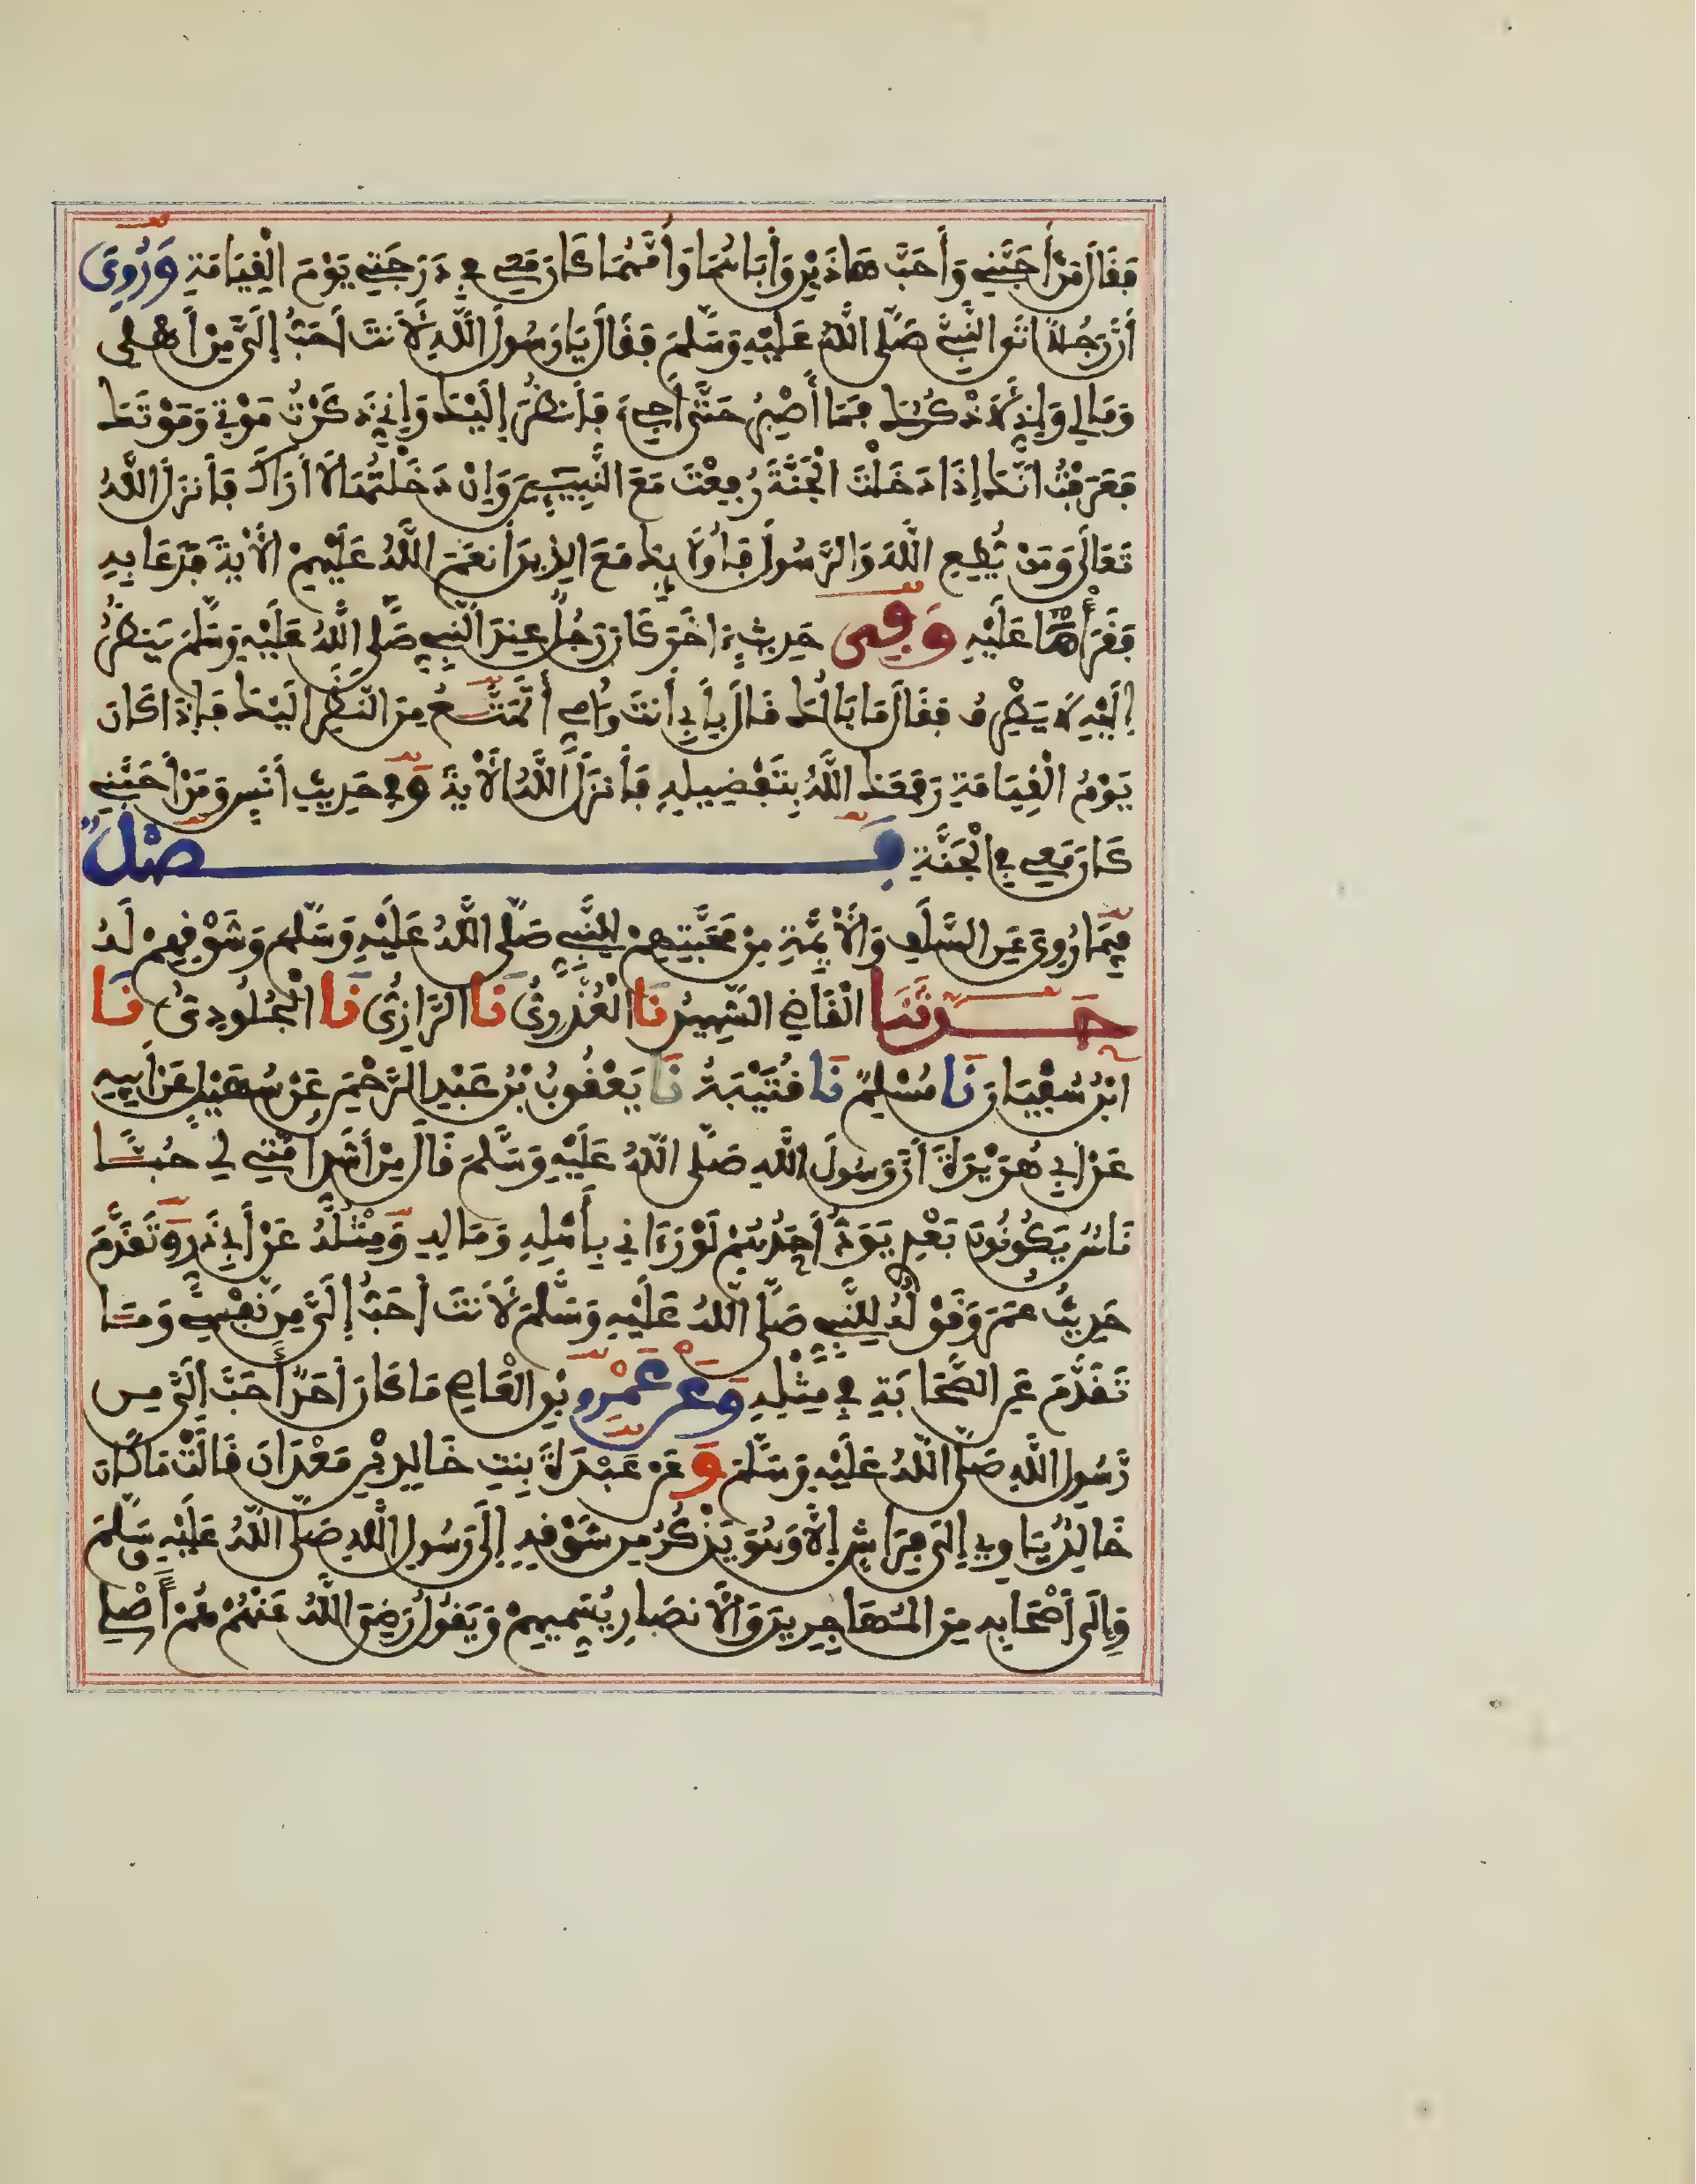 فَقَالَ مَنْ أَحَبَّنِي وَأَحَبَّ هَاذَيْنِ وَأَبَاهُمَا وَأُمَّهُمَا كَانَ مَعِي فِي دَرَجَتِي يَوْمَ الْقِيَامَةِ وَرُوِيَ
أَنَّ رَجُلاً اتَى النَّبِيَّ صَلَّى اللَّهُ عَلَيْهِ وَسَلَّمَ فَقَالَ يَا رَسُولَ اللَّهِ لَأَنتَ أَحَبُّ إِلَيَّ مِنْ أَهْلِي
وَمَالِي وَإِنِّي لَأَذْكُرُكَ فَمَا أَصْبِرُ حَتَّى أَجِيءَ فَأَنظُرَ إِلَيْكَ وَإِنِّي ذَكَرْتُ مَوْتِي وَمَوْتَكَ
فَعَرَفْتُ انَّكَ إِذَا دَخَلْتَ الْجَنَّةَ رُفِعْتَ مَعَ النَّبِيِّينَ وَإِنْ دَخَلْتُهَا لَا أَرَاكَ فَأَنزَلَ اللَّهُ
تَعَالَى وَمَنْ يُطِعِ اللَّهَ وَالرَّسُولَ فَأُولَائِكَ مَعَ الذِينَ أَنعَمَ اللَّهُ عَلَيْهِمْ الْأَيَةَ فَدَعَا بِهِ
فَقَرَأَهَا عَلَيْهِ وَفِي حَدِيثٍ اخَرَ كَانَ رَجُلٌ عِندَ النَّبِيِّ صَلَّى اللَّهُ عَلَيْهِ وَسَلَّمَ يَنظُرُ
إِلَيْهِ لَا يَطْرِفُ فَقَالَ مَا بَالُكَ قَالَ بِأَبِي أَنتَ وَأُمِّي أَتَمَتَّعُ مِنَ النَّظَرِ إِلَيْكَ فَإِذَا كَانَ
يَوْمُ الْقِيَامَةِ رَفَعَكَ اللَّهُ بِتَفْضِيلِهِ فَأَنزَلَ اللَّهُ الْأَيَةَ وَفِي حَدِيثِ أَنَسٍ وَمَنْ أَحَبَّنِي
كَانَ مَعِي فِي الْجَنَّةِ فَصْلٌ
فِيمَا رُوِيَ عَنِ السَّلَفِ وَالْأَئِمَّةِ مِنْ مَحَبَّتِهِمْ لِلنَّبِيِّ صَلَّى اللَّهُ عَلَيْهِ وَسَلَّمَ وَشَوْقِهِمْ لَهُ
حَدَّثَنَا الْقَاضِي الشَّهِيدُ نَا الْعُذْرِيُّ نَا الرَّازِيُّ نَا الْجُلُودِيُّ نَا
ابْنُ سُفْيَانَ نَا مُسْلِمٌ نَا قُتَيْبَةُ نَا يَعْقُوبُ بْنُ عَبْدِ الرَّحْمَنِ عَنْ سُهَيْلٍ عَنْ أَبِيهِ
عَنْ أَبِي هُرَيْرَةَ أَنَّ رَسُولَ اللَّهِ صَلَّى اللَّهُ عَلَيْهِ وَسَلَّمَ قَالَ مِنْ أَشَدِّ أُمَّتِي لِي حُبًّا
نَاسٌ يَكُونُونَ بَعْدِي يَوَدُّ أَحَدُهُمْ لَوْ رَءَانِي بِأَهْلِهِ وَمَالِهِ وَمِثْلُهُ عَنْ أَبِي ذَرٍّ وَتَقَدَّمَ
حَدِيثُ عُمَرَ وَقَوْلُهُ لِلنَّبِيِّ صَلَّى اللَّهُ عَلَيْهِ وَسَلَّمَ لَأَنتَ أَحَبُّ إِلَيَّ مِن نَّفْسِي وَمَا
تَقَدَّمَ عَنِ الصَّحَابَةِ فِي مِثْلِهِ وَعَنْ عَمْرِو بْنِ الْعَاصِي مَا كَانَ أَحَدٌ أَحَبَّ إِلَيَّ مِن
رَّسُولِ اللَّهِ صَلَّى اللَّهُ عَلَيْهِ وَسَلَّمَ وَعَنْ عَبْدَةَ بِنتِ خَالِدِ بْنِ مَعْدَانَ قَالَتْ مَا كَانَ
خَالِدٌ يَأْوِي إِلَى فِرَاشٍ إِلَّا وَهُوَ يَذْكُرُ مِن شَوْقِهِ إِلَى رَسُولِ اللَّهِ صَلَّى اللَّهُ عَلَيْهِ وَسَلَّمَ
وَإِلَى أَصْحَابِهِ مِنَ الْمُهَاجِرِينَ وَالْأَنصَارِ يُسَمِّيهِمْ وَيَقُولُ رَضِيَ اللَّهُ عَنْهُمْ هُمْ أَصْلِي